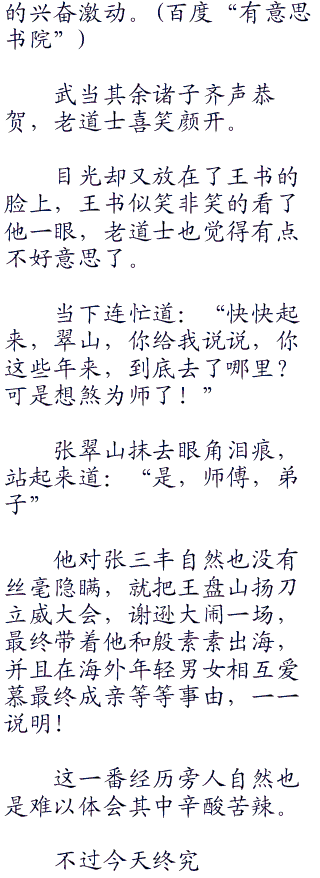 的兴奋激动。(百度“有意思
书院”)
武当其余诸子齐声恭
贺，老道士喜笑颜开。
目光却又放在了王书的
脸上，王书似笑非笑的看了
他一眼，老道士也觉得有点
不好意思了。
当下连忙道：“快快起
来，翠山，你给我说说，你
这些年来，到底去了哪里？
可是想煞为师了！”
张翠山抹去眼角泪痕，
站起来道：“是，师傅，弟
子”
他对张三丰自然也没有
丝毫隐瞒，就把王盘山扬刀
立威大会，谢逊大闹一场，
最终带着他和殷素素出海，
并且在海外年轻男女相互爱
慕最终成亲等等事由，一一
说明！
这一番经历旁人自然也
是难以体会其中辛酸苦辣。
不过今天终究